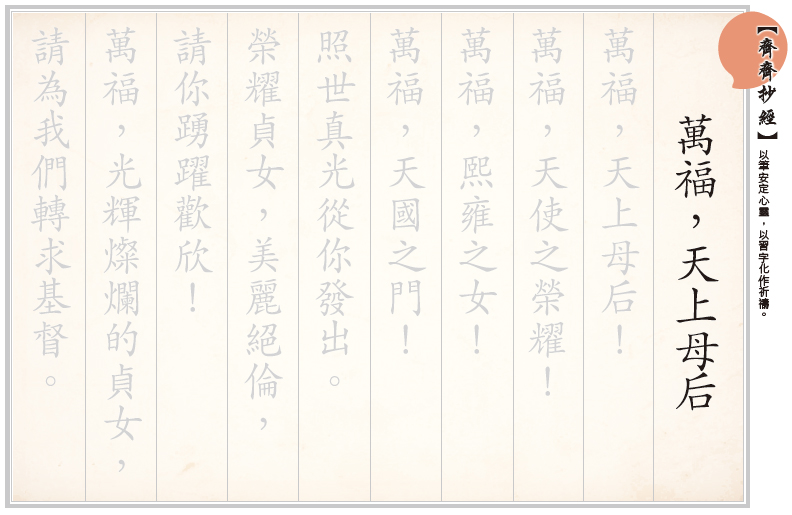 【齊齊抄經】以筆安定心靈，以習字化作祈禱。
萬福，天上母后
萬福，天上母后！
萬福，天使之榮耀！
萬福，熙雍之女！
萬福，天國之門！
照世真光從你發出。
榮耀貞女，美麗絕倫，
請你踴躍歡欣！
萬福，光輝燦爛的貞女，
請為我們轉求基督。